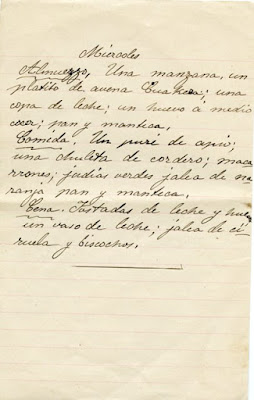 Miércoles
Almuerzo. Una manzana, un
platito de avena Cuakea; una
copa de leche; un huevo á medio
coco; pan y mantica.
Comida. Un pure de apio;
una chulita de cordero; maca
rrones; judias verdes jalea de na
ranja pan y mantica.
Cena. Tostadas de leche y huevo
un vaso de leche; jalea de ci
ruela y biscochos.